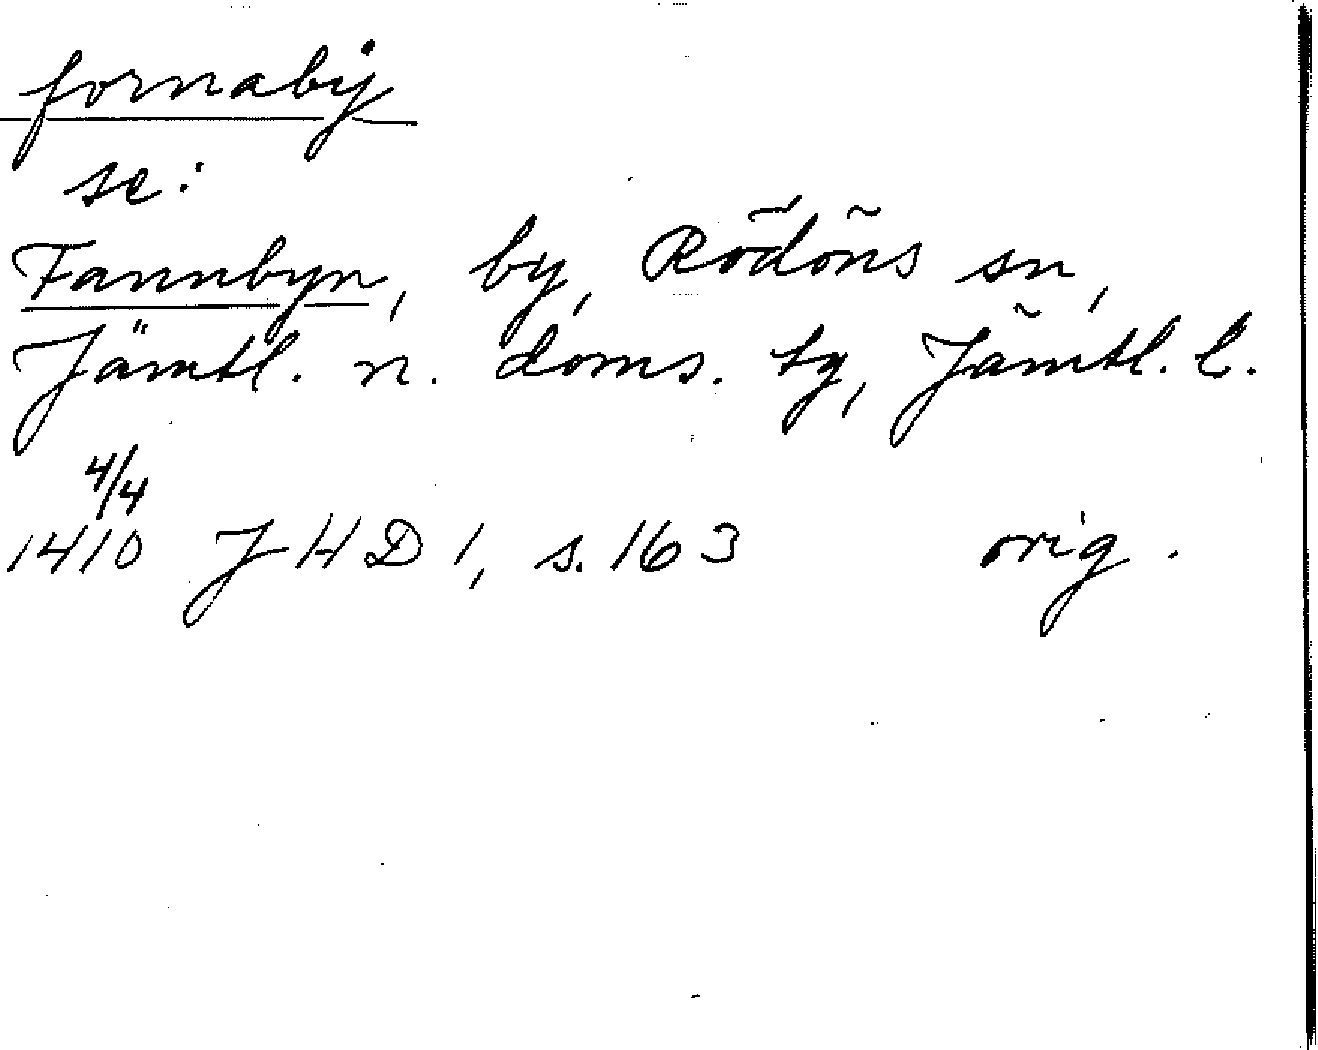 fornabẏ
se:
Fannbyn, by, Rödöns sn,
Jämtl. n. doms. tg, Jämtl. l.
4/4
1410 JHD 1, s. 163 orig.